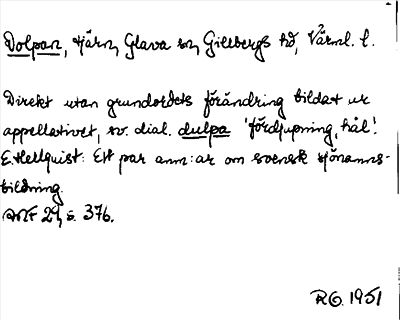 Dolpan, tjärn, Glava sn, Gillbergs hd, Värml. l.
Direkt utan grundordets förändring bildat ur
appellativet, sv. dial. dulpa 'fördjupning, hål'.
E. Hellquist: Ett par anm:ar om svensk sjönamns-
bildning.
ANF 29, s. 376.
R.G. 1951